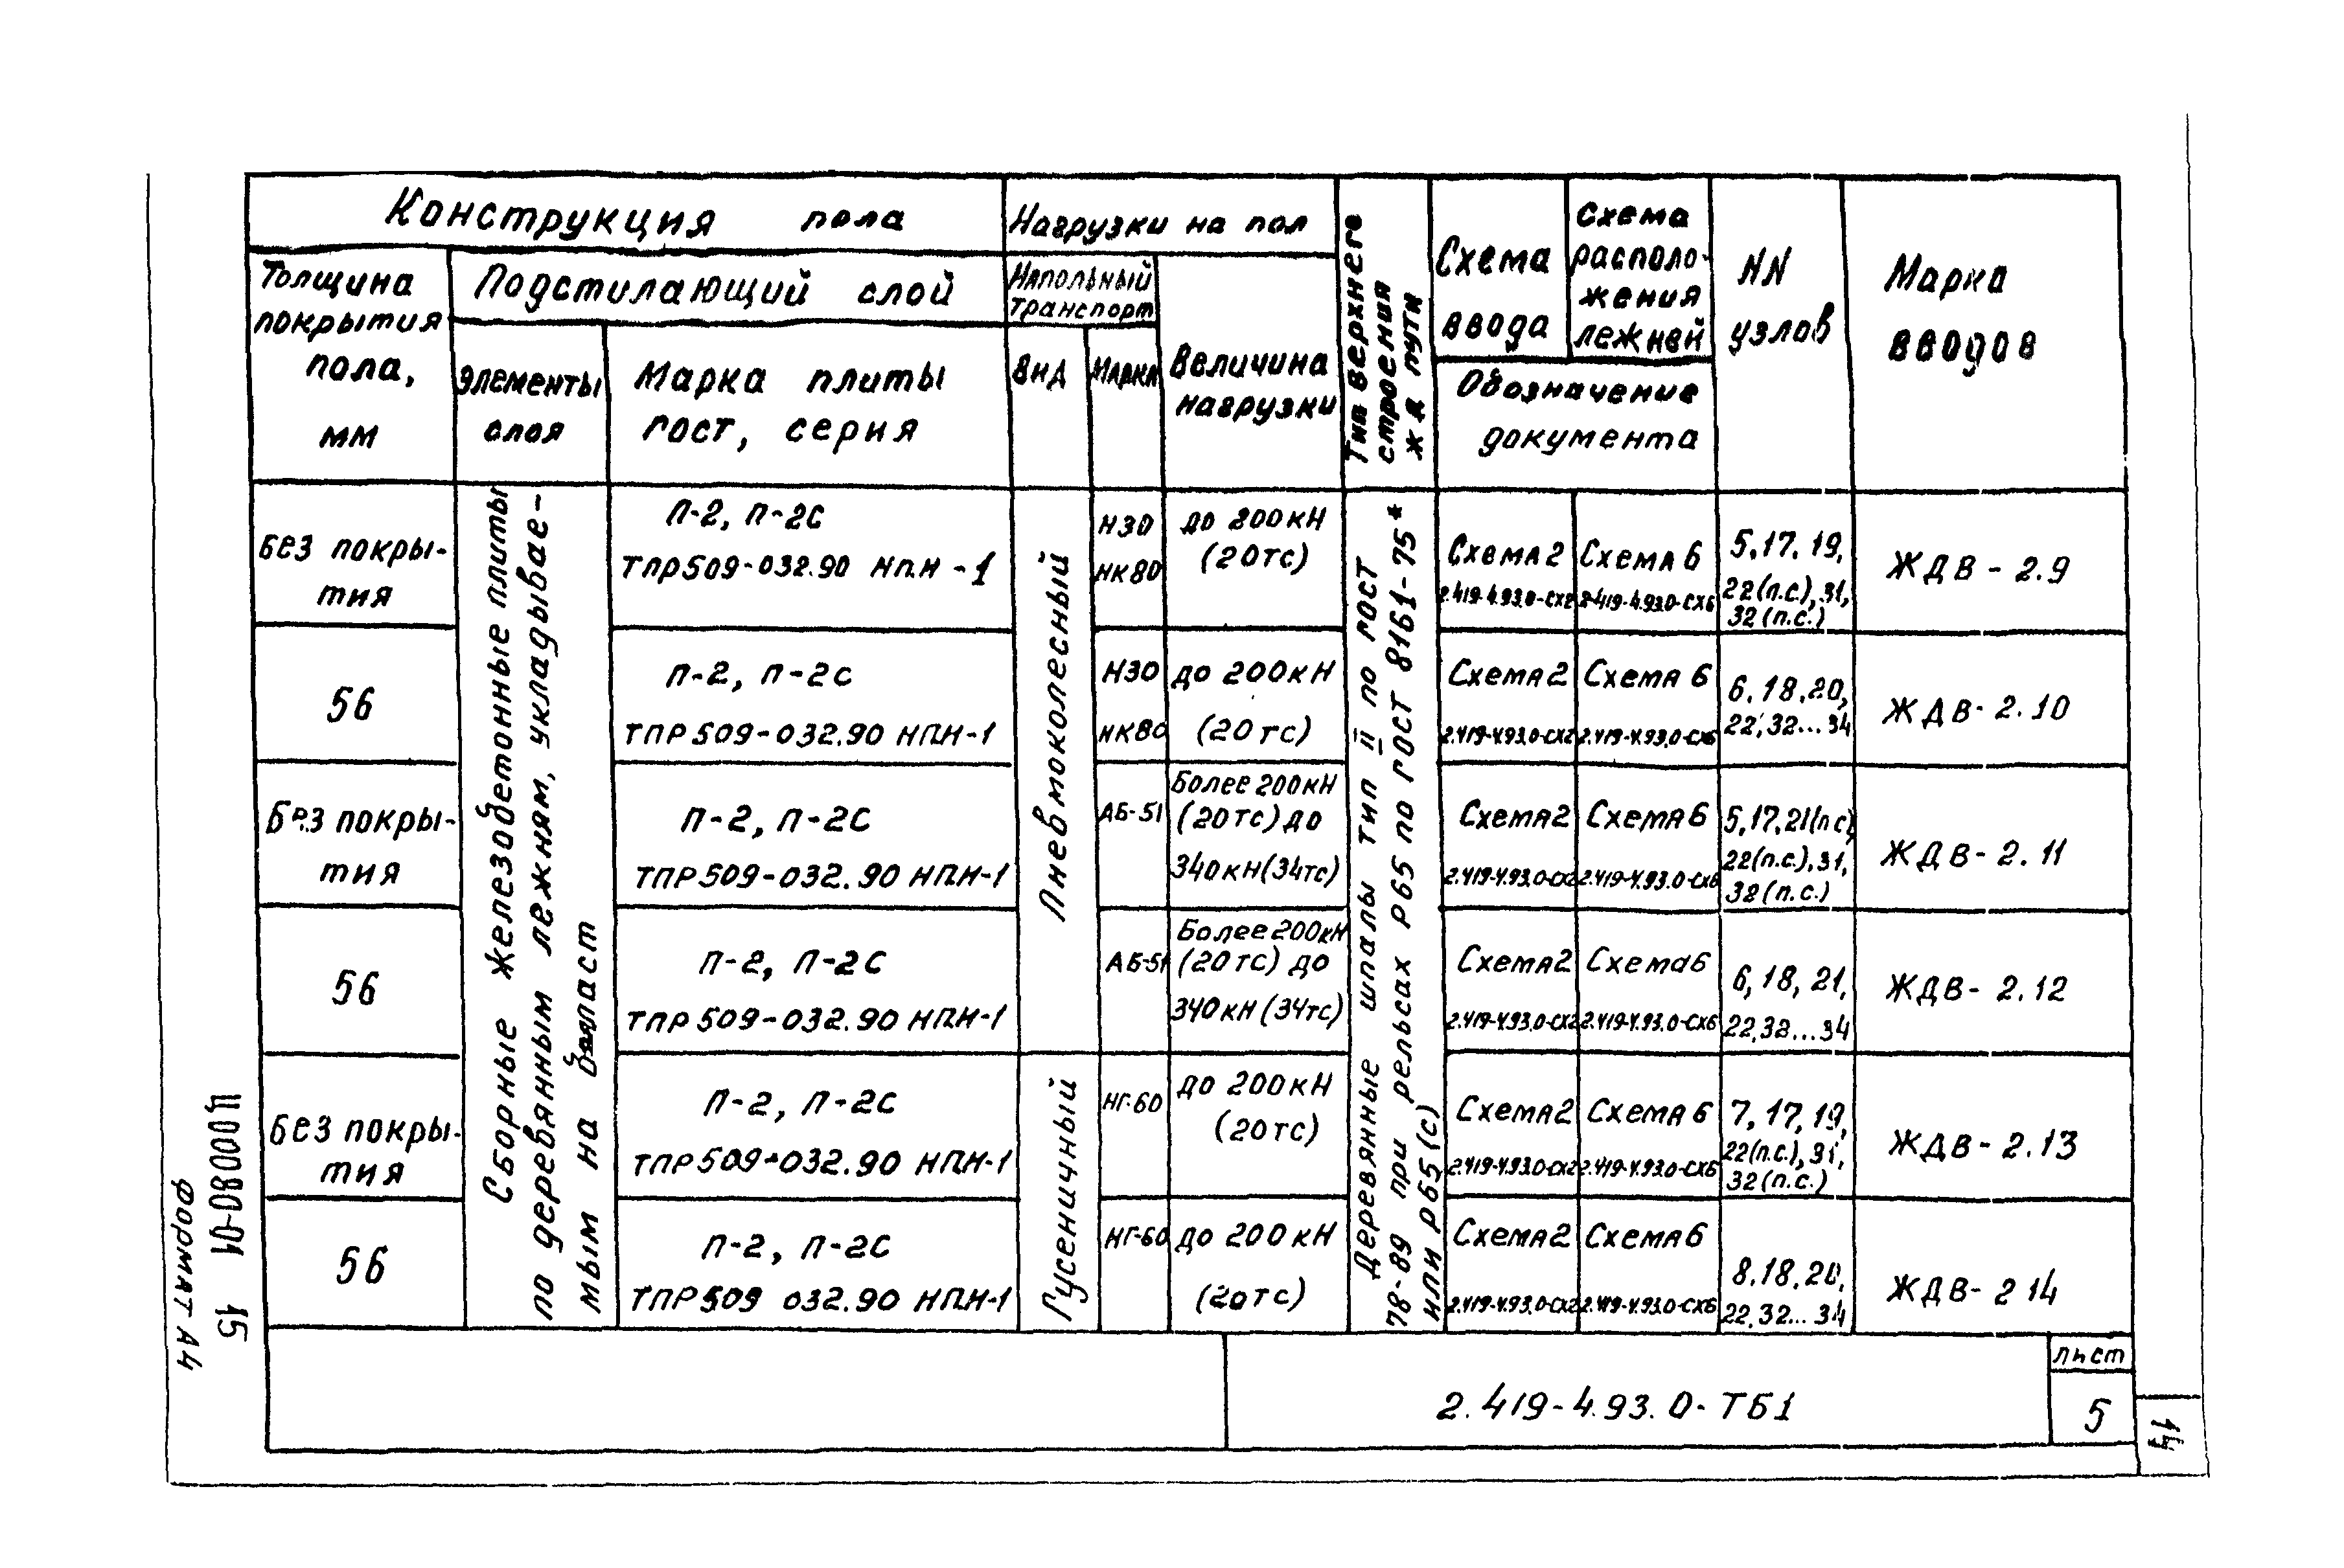 Конструкция пола
Нагрузки на пол
Тип верхнего
строения
ж д пути
Схема
ввода
Схема
располо-
жения
лежней
NN
узлов
Марка
вводов
Толщина
покрытия
пола,
мм
Подстилающий слой
Напольный
транспорт
Величина
нагрузки
Элементы
слоя
Марка плиты
гост, серия
Вид
Марка
Обозначение
документа
Без покры-
тия
Сборные железобетонные плиты
по деревянным лежням, укладывае-
мым на балласт
П-2, П-2С
ТПР509-032.90 НП.Н-1
Пневмоколесный
Н30
НК80
до 200кН
(20тс)
Деревянные шпалы тип II по гост
78-89 при рельсах Р65 по гост 8161-75*
или Р65(с)
Схема 2
2.419-4.93.0-СХ2
Схема 6
2.419-4.93.0-СХ6
5,17,19,
22(п.с.),31,
32(п.с.)
ЖДВ-2.9
56
П-2, П-2С
ТПР509-032.90 НП.Н-1
Н30
НК80
до 200кН
(20тс)
Схема 2
2.419-4.93.0-СХ2
Схема 6
2.419-4.93.0-СХ6
6,18,20,
22,32...34
ЖДВ-2.10
Без покры-
тия
П-2, П-2С
ТПР509-032.90 НП.Н-1
АБ-51
Более 200кН
(20тс) до
340кН(34тс)
Схема 2
2.419-4.93.0-СХ2
Схема 6
2.419-4.93.0-СХ6
5,17,21(п.с),
22(п.с.),31,
32(п.с.)
ЖДВ-2.11
56
П-2, П-2С
ТПР509-032.90 НП.Н-1
АБ-51
Более 200кН
(20тс) до
340кН(34тс)
Схема 2
2.419-4.93.0-СХ2
Схема 6
2.419-4.93.0-СХ6
6,18,21,
22,32...34
ЖДВ-2.12
Без покры-
тия
П-2, П-2С
ТПР509-032.90 НП.Н-1
Гусеничный
НГ-60
до 200кН
(20тс)
Схема 2
2.419-4.93.0-СХ2
Схема 6
2.419-4.93.0-СХ6
7,17,19,
22(п.с.),31,
32(п.с.)
ЖДВ-2.13
56
П-2, П-2С
ТПР509 032.90 НП.Н-1
НГ-60
до 200кН
(20тс)
Схема 2
2.419-4.93.0-СХ2
Схема 6
2.419-4.93.0-СХ6
8,18,20,
22,32...34
ЖДВ-2 14
2.419-4.93.0-ТБ1
лист
5
14
Ц00080-01 15
формат А4